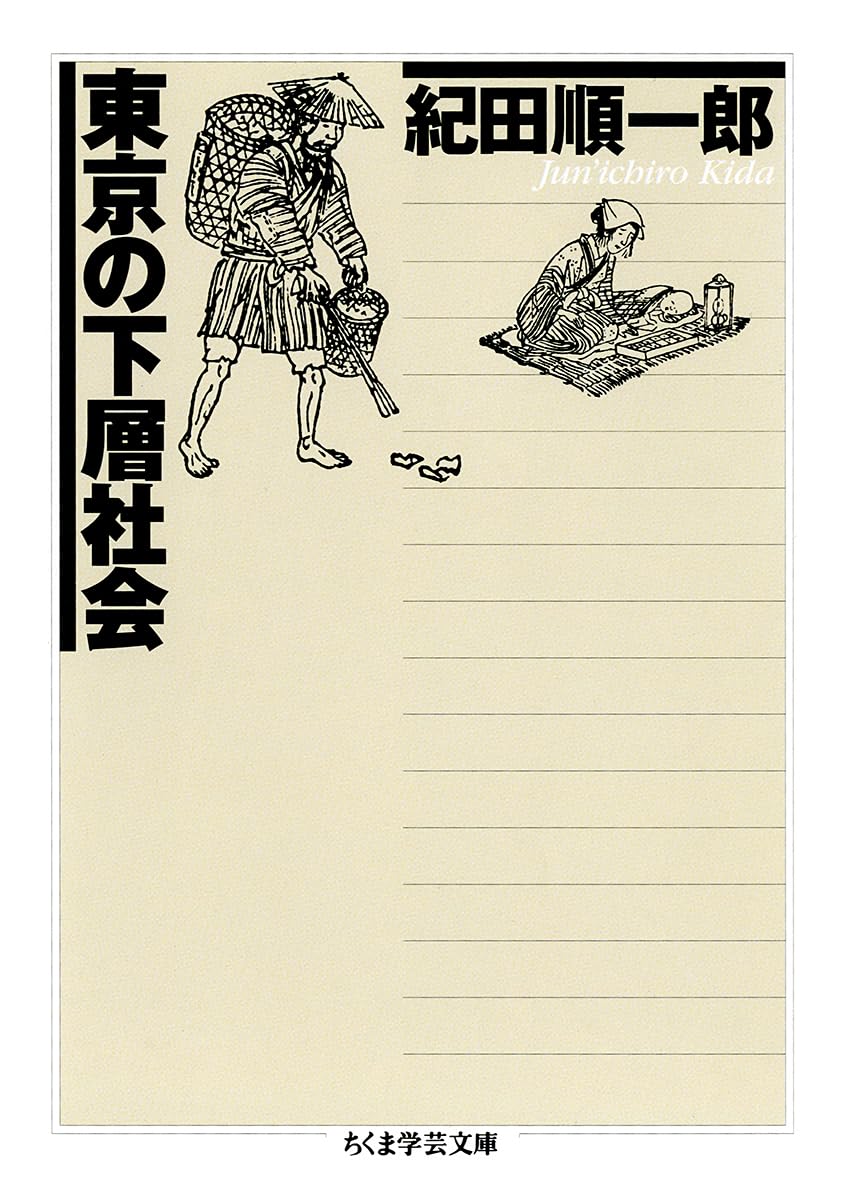 東京の下層社会
紀田順一郎
Jun'ichiro Kida
ちくま学芸文庫